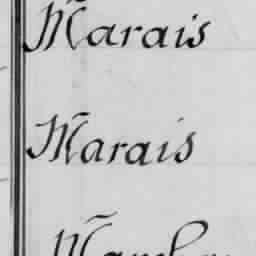 Marais
Marais